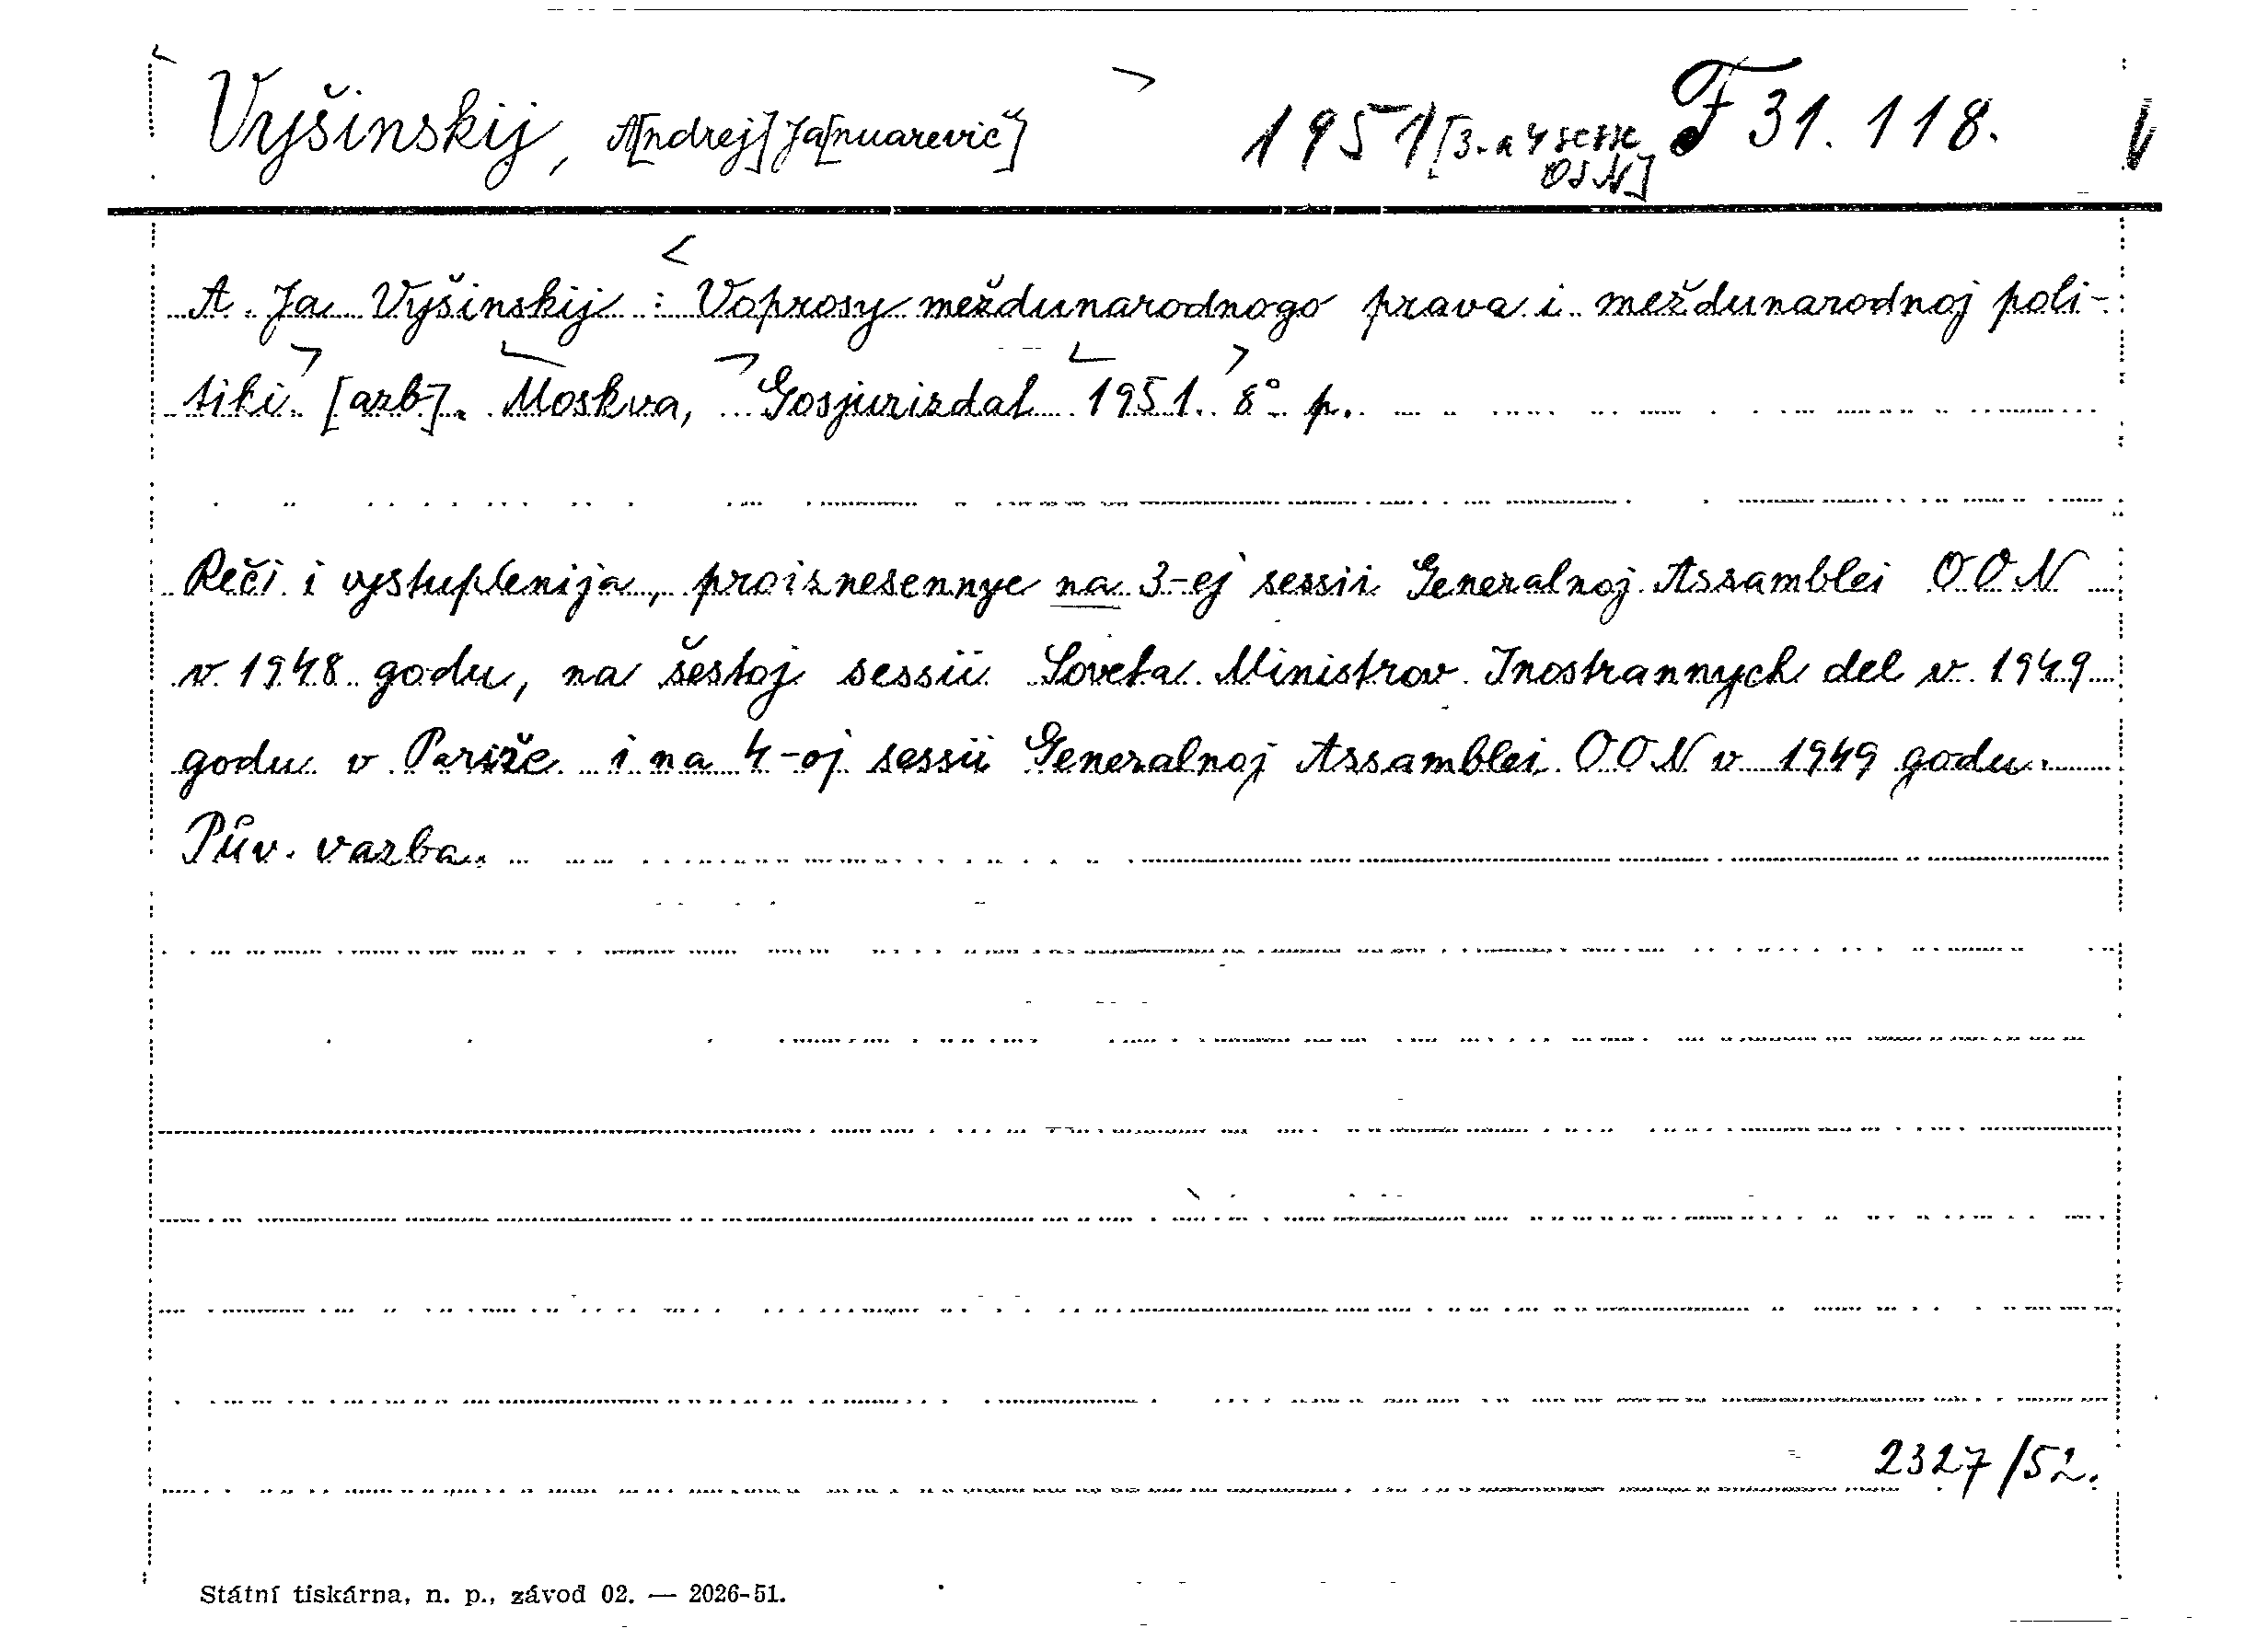 Vyšinskij, A[ndrej] Ja[nuarevič] 1951 [3. a 4 sesse OSN] F 31.118.
A. Ja Vyšinskij: Voprosy meždunarodnogo prava i meždunarodnoj poli-
tiki [azb]. Moskva, Gosjurizdat 1951. 8° p.
Reči i vystuplenija, proiznesennye na 3-ej sessii Generalnoj Assamblei OON
v 1948 godu, na šestoj sessii Soveta Ministrov Inostrannych del v 1949
godu v Pariže i na 4-oj sessii Generalnoj Assamblei OON v 1949 godu.
Pův. vazba.
2327/52.
Státní tiskárna, n. p., závod 02. — 2026-51.